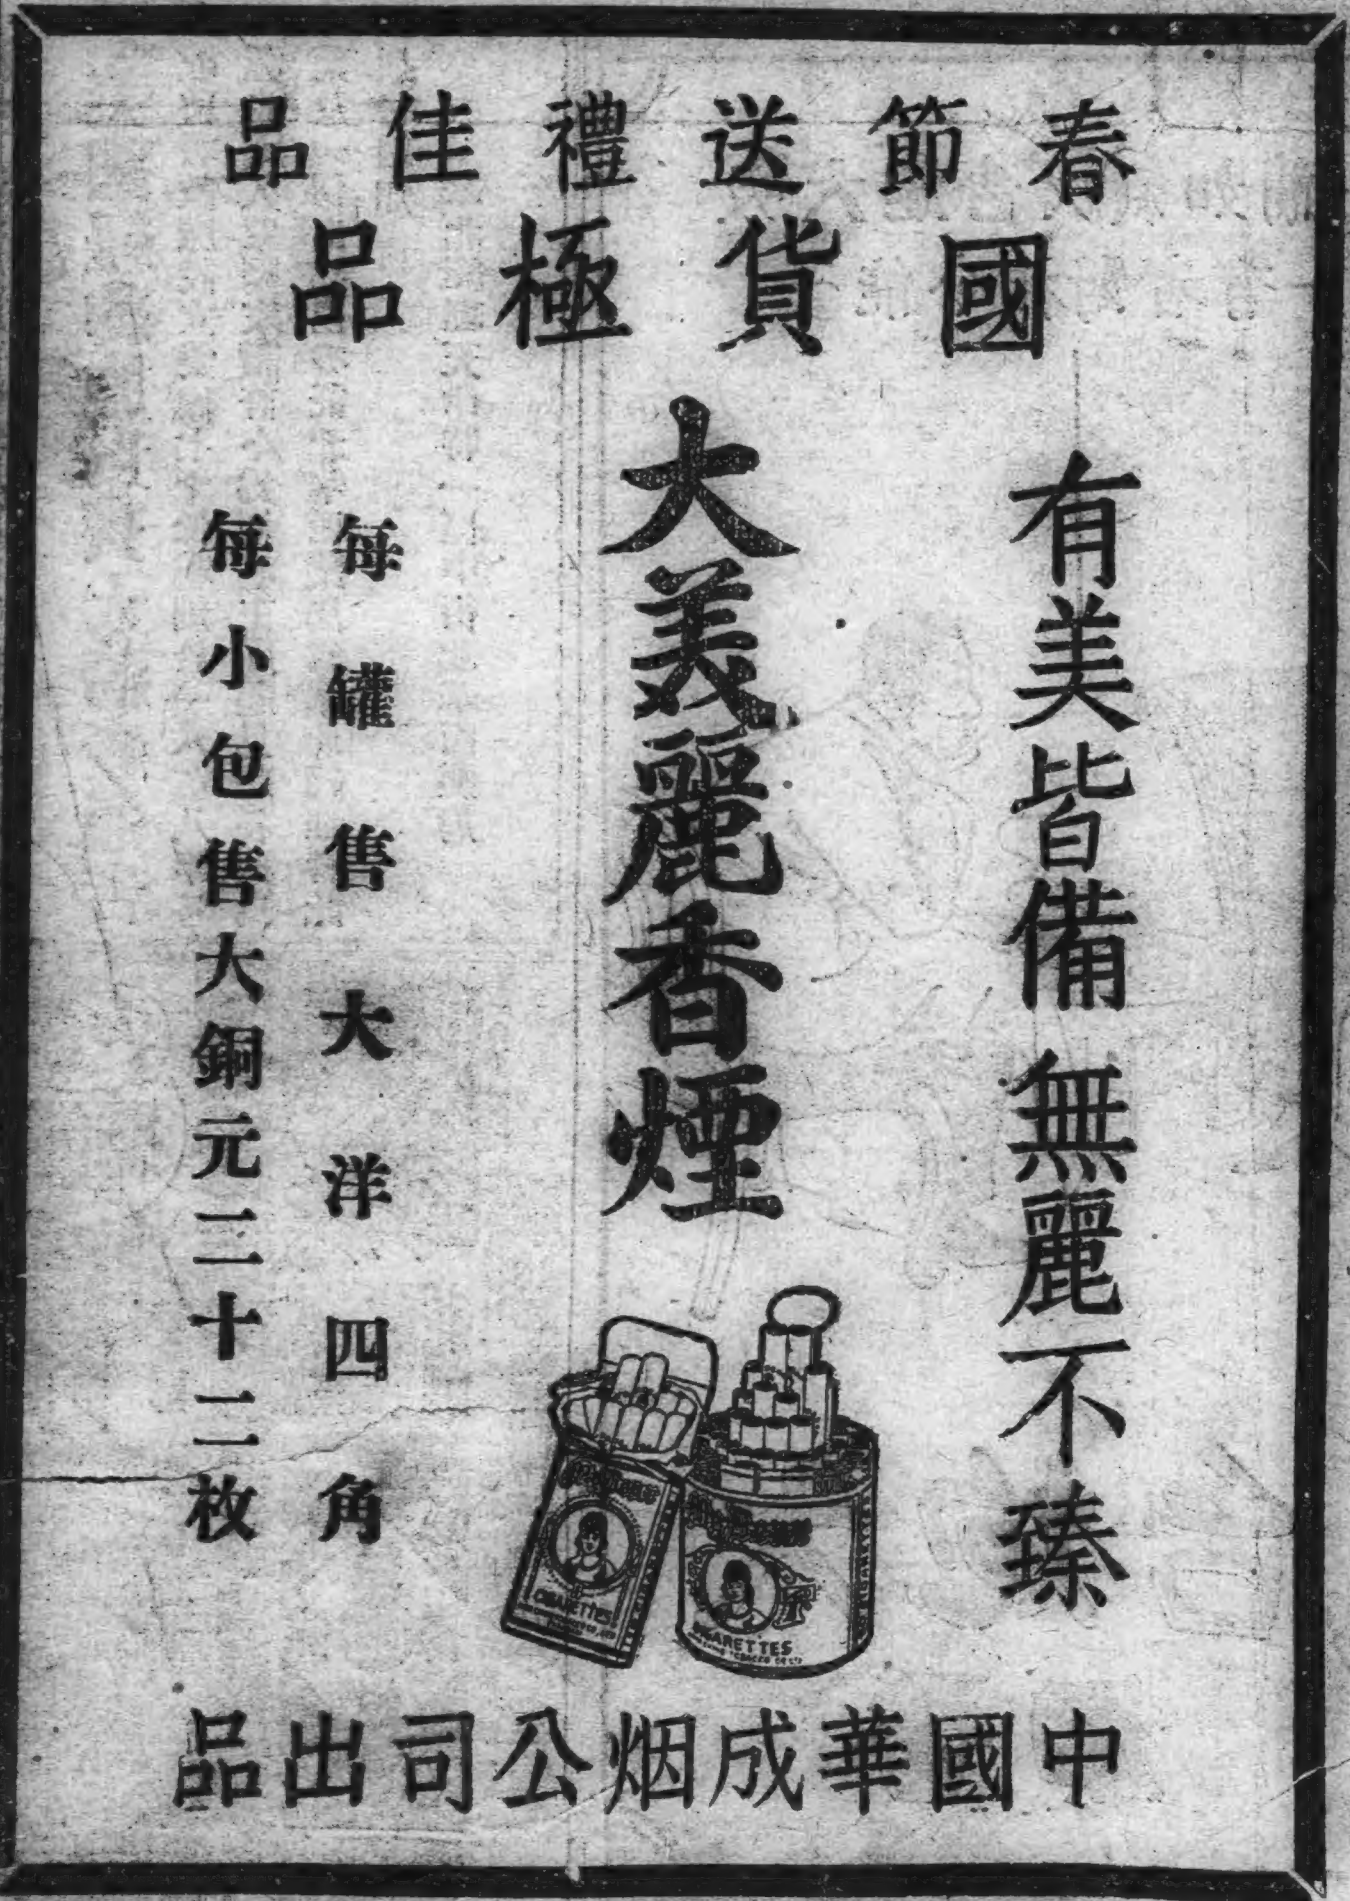 春節送禮佳品
國貨極品
有美皆備無麗不臻
大美麗香煙
每罐售大洋四角
每小包售大銅元二十二枚
CIGARETTES
CIGARETTES
中國華成烟公司出品